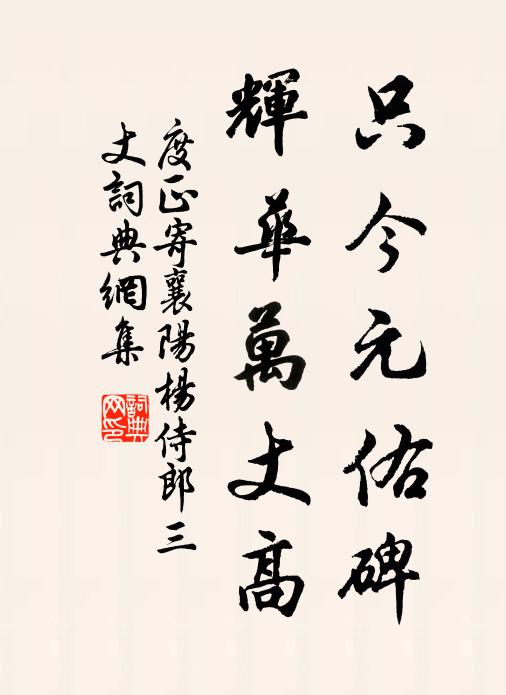 只今元佑碑
輝華萬丈高
度正寄襄陽楊侍郎三
丈詞典網集
詞典
网印